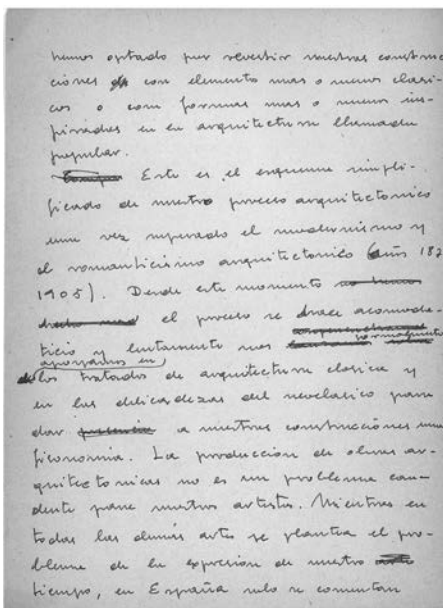 hemos optado por revestir nuestras construc
ciones con elementos mas o menos clasi-
cos o con formas mas o menos ins-
piradas en en arquitectura llamada
popular.
Este es el esquema simpli-
ficado de nuestro proceso arquitectonico
una vez superado el modernismo y
el romanticismo arquitectonico (años 187
1905). Desde este momento
el proceso se hace acomoda-
ticio y lentamente nos
apoyados en
los tratados de arquitectura clasica y
en las delicadezas del neoclasico para
dar a nuestras construcciones una
fisonomia. La producción de obras ar-
quitectonicas no es un problema can-
dente para nuestros artistas. Mientras en
todas las demás artes se plantea el pro-
blema de la expresion de nuestro
tiempo, en España solo se comentan